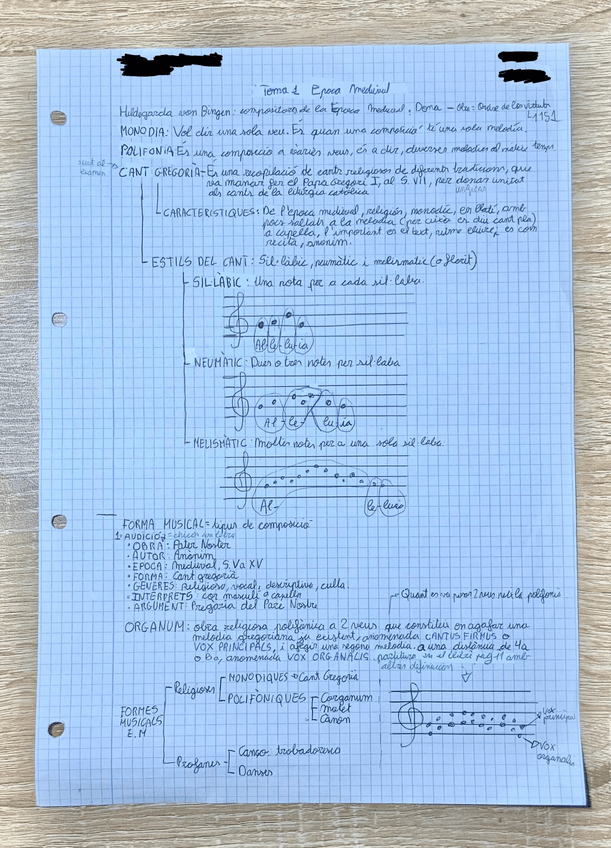 Tema 1 Època Medieval
Hildegarda von Bingen: compositora de la Època Medieval. Dona - Obra: Ordre de les virtuts
1151
MONODIA: Vol dir una sola veu. És quan una composició té una sola melodia.
POLIFONIA: És una composició a vàries veus, és a dir, diverses melodies al mateix temps
surt al examen
CANT GREGORIÀ - És una recopilació de cants religiosos de diferents tradicions, que
va manar fer el Papa Gregori I, al S. VII, per donar unitat
als cants de la litúrgia catòlica
CARACTERISTIQUES: De l'època medieval, religiós, monodic, en llatí, amb
pocs salts a la melodia (per això es diu cant pla)
a capella, l'important es el text, ritme lliure, es com
recita, anonim.
ESTILS DEL CANT: Sil·làbic, neumàtic i melismatic (o florit)
SIL·LÀBIC: Una nota per a cada sil·laba.
Al-le-lu-ia
NEUMÀTIC: Dues o tres notes per sil·laba
Al-le-lu-ia
MELISMÀTIC: Moltes notes per a una sola sil·laba.
Al- le-luia
FORMA MUSICAL = tipus de composició
1ª AUDICIÓ =
• OBRA: Pater Noster
• AUTOR: Anònim
• EPOCA: Medieval, S. V a XV
• FORMA: Cant gregorià
• GÈNERES: Religiosa, vocal, descriptiva, culta.
• INTÈRPRETS: cor masculí a capella
• ARGUMENT: Pregaria del Pare Nostre
Quant es va posar 2 veus neix la polifonia
ORGANUM: obra religiosa polifònica a 2 veus que consisteix en agafar una
melodia gregoriana ja existent, anomenada CANTUS FIRMUS o
VOX PRINCIPALS, i afegir una segona melodia a una distància de 4a
o 5a, anomenada VOX ORGANALIS. partitura en el llibre pag 11 amb
altres definicions
FORMES MUSICALS E.M
Religioses
MONODIQUES → Cant Gregorià
POLIFÒNIQUES
Organum
Motet
Canon
Profanes
Cançó trobadoresca
Danses
Vox principal
VOX organalis